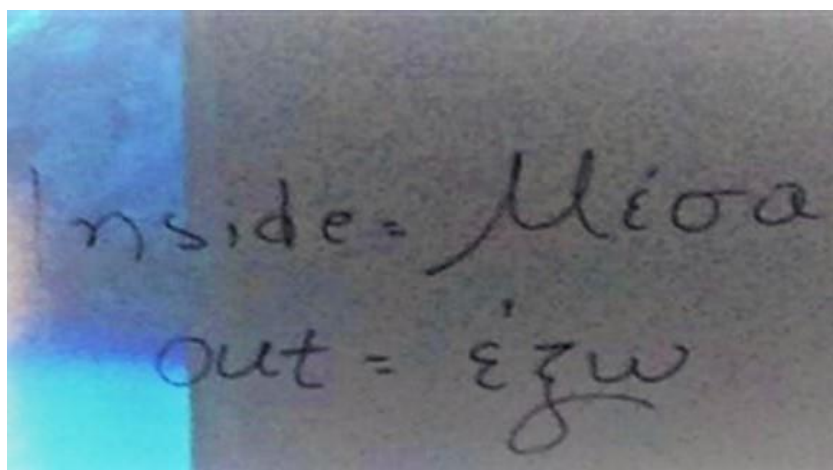 Inside = Μέσα
out = έξω